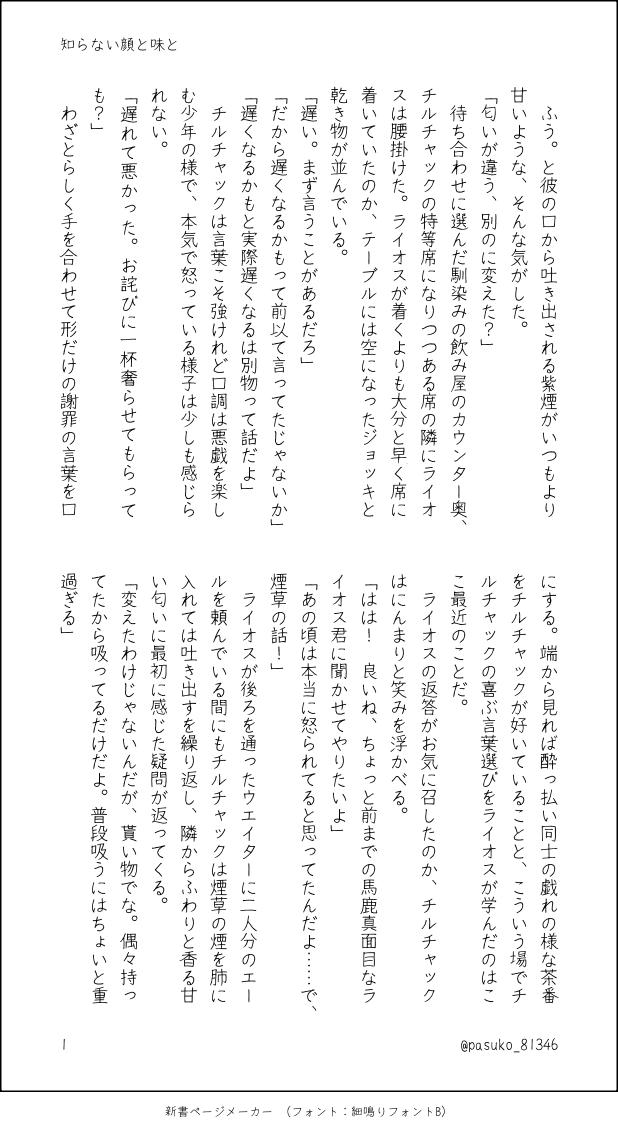 知らない顔と味と
　ふう。と彼の口から吐き出される紫煙がいつもより
甘いような、そんな気がした。
「匂いが違う、別のに変えた？」
　待ち合わせに選んだ馴染みの飲み屋のカウンター奥、
チルチャックの特等席になりつつある席の隣にライオ
スは腰掛けた。ライオスが着くよりも大分と早く席に
着いていたのか、テーブルには空になったジョッキと
乾き物が並んでいる。
「遅い。まず言うことがあるだろ」
「だから遅くなるかもって前以て言ってたじゃないか」
「遅くなるかもと実際遅くなるは別物って話だよ」
　チルチャックは言葉こそ強けれど口調は悪戯を楽し
む少年の様で、本気で怒っている様子は少しも感じら
れない。
「遅れて悪かった。お詫びに一杯奢らせてもらって
も？」
　わざとらしく手を合わせて形だけの謝罪の言葉を口
にする。端から見れば酔っ払い同士の戯れの様な茶番
をチルチャックが好いていることと、こういう場でチ
ルチャックの喜ぶ言葉選びをライオスが学んだのはこ
こ最近のことだ。
　ライオスの返答がお気に召したのか、チルチャック
はにんまりと笑みを浮かべる。
「はは！　良いね、ちょっと前までの馬鹿真面目なラ
イオス君に聞かせてやりたいよ」
「あの頃は本当に怒られてると思ってたんだよ……で、
煙草の話！」
　ライオスが後ろを通ったウエイターに二人分のエー
ルを頼んでいる間にもチルチャックは煙草の煙を肺に
入れては吐き出すを繰り返し、隣からふわりと香る甘
い匂いに最初に感じた疑問が返ってくる。
「変えたわけじゃないんだが、貰い物でな。偶々持っ
てたから吸ってるだけだよ。普段吸うにはちょいと重
過ぎる」
1
@pasuko_81346
新書ページメーカー　（フォント：細鳴りフォントB）